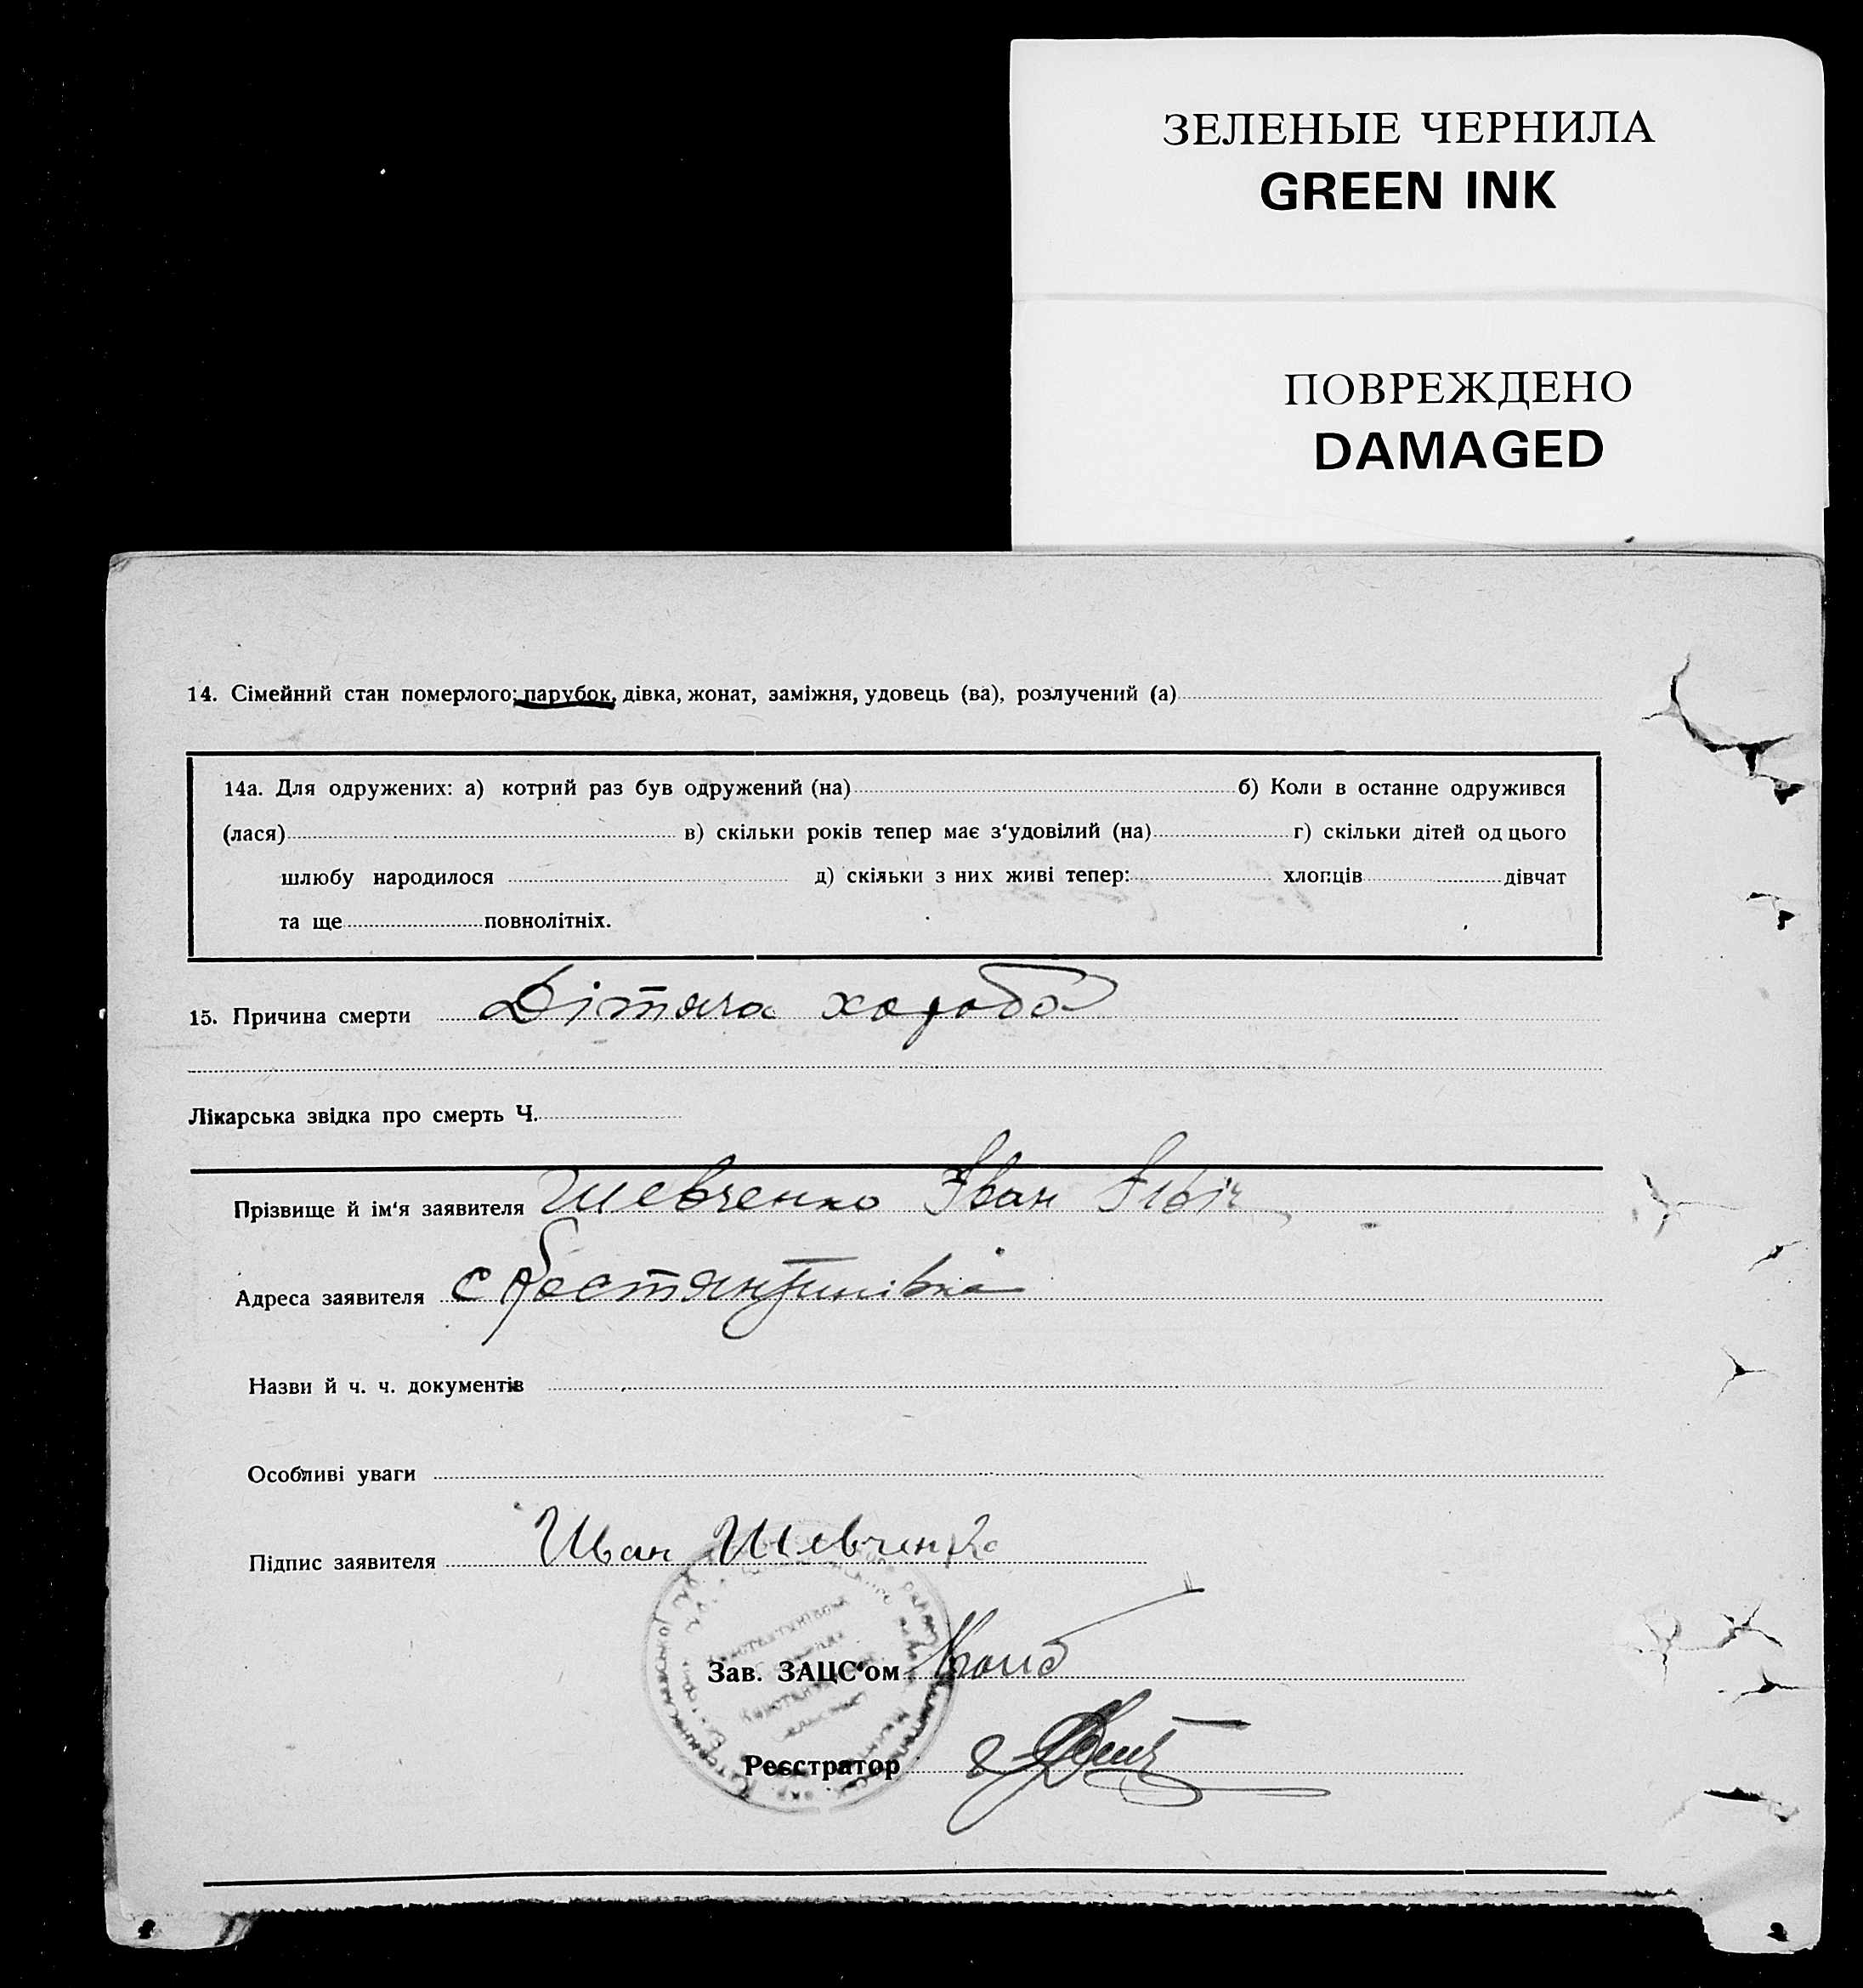 ЗЕЛЕНЫЕ ЧЕРНИЛА
GREEN INK
ПОВРЕЖДЕНО
DAMAGED
14. Сімейний стан померлого: парубок, дівка, жонат, заміжня, удовець (ва), розлучений (а)
14а. Для одружених: а) котрий раз був одружений (на) б) Коли в останне одружився
(лася) в) скільки років тепер має з‘удовілий (на) г) скільки дітей од цього
шлюбу народилося д) скільки з них живі тепер: хлопців дівчат
та ще повнолітніх.
15. Причина смерти Дітяча хороба
Лікарська звідка про смерть Ч.
Прізвище й ім‘я заявителя Шевченко Іван
Адреса заявителя с Костянтинівка
Назви й ч. ч. документів
Особливі уваги
Підпис заявителя Иван Шевченко
Зав. ЗАЦС‘ом
Реєстратор